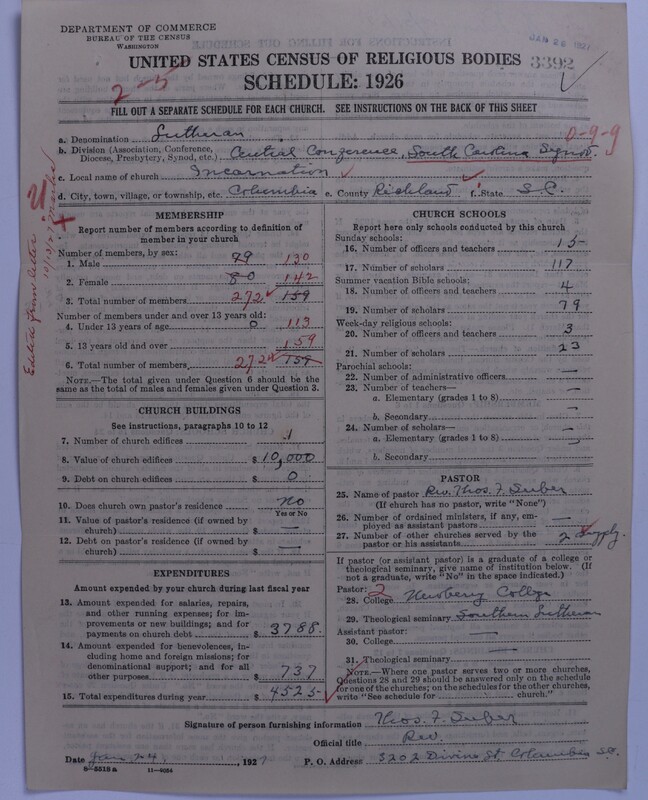 DEPARTMENT OF COMMERCE
BUREAU OF THE CENSUS
WASHINGTON
JAN 26 1927
UNITED STATES CENSUS OF RELIGIOUS BODIES
3392
SCHEDULE: 1926
FILL OUT A SEPARATE SCHEDULE FOR EACH CHURCH. SEE INSTRUCTIONS ON THE BACK OF THIS SHEET
0-9-9
a. Denomination Lutheran
b. Division (Association, Conference, Diocese, Presbytery, Synod, etc.) Central Conference, South Carolina Synod.
c. Local name of church Incarnation
d. City, town, village, or township, etc. Columbia e. County Richland f. State S.C.
Edited from letter
MEMBERSHIP
Report number of members according to definition of
member in your church
Number of members, by sex:
1. Male 79 130
2. Female 80 142
3. Total number of members 272 159
Number of members under and over 13 years old:
4. Under 13 years of age 0 113
5. 13 years old and over 159
6. Total number of members 272 159
NOTE.—The total given under Question 6 should be
same as the total of males and females given under Question 3.
CHURCH BUILDINGS
See instructions, paragraphs 10 to 12
7. Number of church edifices 1
8. Value of church edifices $ 10,000
9. Debt on church edifices $ 0
10. Does church own pastor's residence? no
Yes or No
11. Value of pastor's residence (if owned by
church) $ —
12. Debt on pastor's residence (if owned by
church) $ —
EXPENDITURES
Amount expended by your church during last fiscal year
13. Amount expended for salaries, repairs,
and other running expenses; for im-
provements or new buildings; and for
payments on church debt $ 3788.
14. Amount expended for benevolences, in-
cluding home and foreign missions; for
denominational support; and for all
other purposes $ 737
15. Total expenditures during year $ 4525
CHURCH SCHOOLS
Report here only schools conducted by this church
Sunday schools:
16. Number of officers and teachers 15
17. Number of scholars 117
Summer vacation Bible schools:
18. Number of officers and teachers 4
19. Number of scholars 79
Week-day religious schools:
20. Number of officers and teachers 3
21. Number of scholars 23
Parochial schools:
22. Number of administrative officers —
23. Number of teachers—
a. Elementary (grades 1 to 8) —
b. Secondary —
24. Number of scholars—
a. Elementary (grades 1 to 8) —
b. Secondary —
PASTOR
25. Name of pastor Rev. Thos. F. Suber
(If church has no pastor, write "None")
26. Number of ordained ministers, if any, em-
ployed as assistant pastors —
27. Number of other churches served by the
pastor or his assistants 2 supply.
If pastor (or assistant pastor) is a graduate of a college or
theological seminary, give name of institution below. (If
not a graduate, write "No" in the space indicated.)
Pastor: 2
28. College Newberry College
29. Theological seminary Southern Lutheran
Assistant pastor:
30. College —
31. Theological seminary —
NOTE.—Where one pastor serves two or more churches,
Questions 28 and 29 should be answered only on the schedule
for one of the churches; on the schedules for the other churches,
write "See schedule for church."
Signature of person furnishing information Thos. F. Suber
Official title Rev.
Date Jan 24, 1927 P. O. Address 3202 Divine St. Columbia S.C.
8-5518 a 11-9054